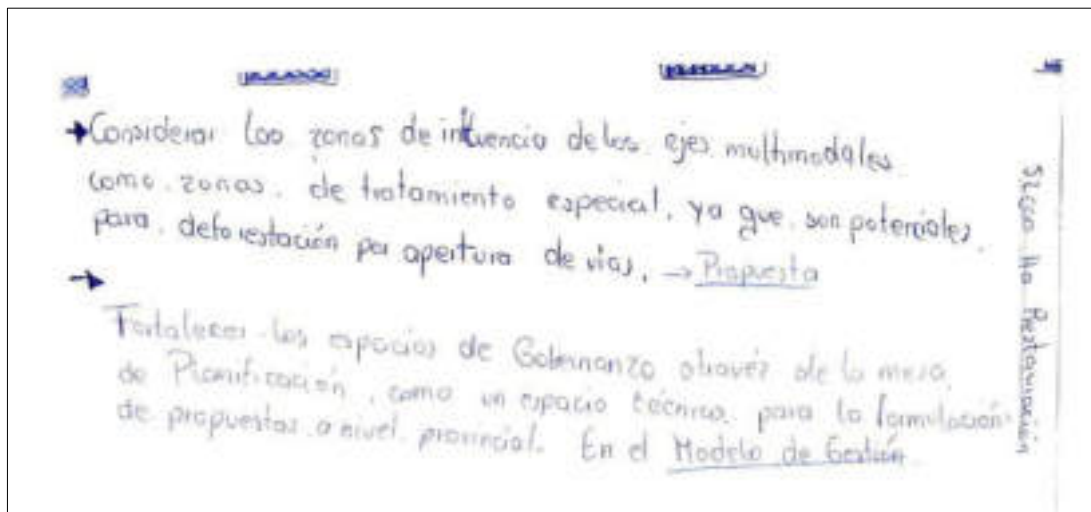 →Considerar las zonas de influencia de los ejes multimodales
como zonas de tratamiento especial, ya que son potenciales
para deforestación por apertura de vías, → Propuesta
→
Fortalecer los espacios de Gobernanza através de la mesa
de Planificación, como un espacio técnico para la formulación
de propuestas a nivel provincial. En el Modelo de Gestión
Ha Restauración